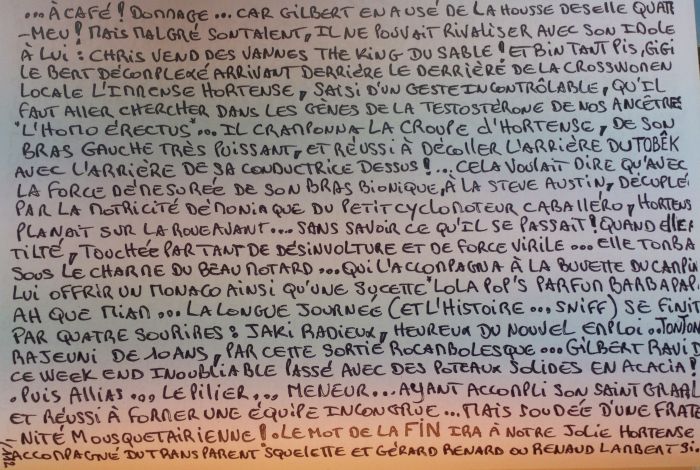 ... À CAFÉ ! DOMMAGE... CAR GILBERT EN A USÉ DE LA HOUSSE DE SELLE QUATR
-MEU ! MAIS MALGRÉ SON TALENT, IL NE POUVAIT RIVALISER AVEC SON IDOLE
À LUI : CHRIS VEND DES VANNES THE KING DU SABLE ! ET BIN TANT PIS, GIGI
LE BERT DÉCOMPLEXÉ ARRIVANT DERRIÈRE LE DERRIÈRE DE LA CROSSWOMEN
LOCALE L'IMMENSE HORTENSE, SAISI D'UN GESTE INCONTRÔLABLE, QU'IL
FAUT ALLER CHERCHER DANS LES GÈNES DE LA TESTOSTÉRONE DE NOS ANCÊTRES
"L'HOMO ÉRECTUS"... IL CRAMPONNA LA CROUPE d'HORTENSE, DE SON
BRAS GAUCHE TRÈS PUISSANT, ET RÉUSSI À DÉCOLLER L'ARRIÈRE DU TOBÊK
AVEC L'ARRIÈRE DE SA CONDUCTRICE DESSUS !... CELA VOULAIT DIRE QU'AVEC
LA FORCE DÉMESURÉE DE SON BRAS BIONIQUE, À LA STEVE AUSTIN, DÉCUPLÉ
PAR LA MOTRICITÉ DÉMONIAQUE DU PETIT CYCLOMOTEUR CABALLÉRO, HORTENS
PLANAIT SUR LA ROUE AVANT... SANS SAVOIR CE QU'IL SE PASSAIT ! QUAND ELLE A
TILTÉ, TOUCHÉE PAR TANT DE DÉSINVOLTURE ET DE FORCE VIRILE... ELLE TOMBA
SOUS LE CHARME DU BEAU MOTARD... QUI L'ACCOMPAGNA À LA BUVETTE DU CAMPIN
LUI OFFRIR UN MONACO AINSI QU'UNE SUCETTE "LOLA POP'S PARFUM BARBAPAP
AH QUE MIAM... LA LONGUE JOURNÉE (ET L'HISTOIRE... SNIFF) SE FINIT
PAR QUATRE SOURIRES : JAKI RADIEUX, HEUREUX DU NOUVEL EMPLOI.. TONTON
RAJEUNI DE 10 ANS, PAR CETTE SORTIE ROCAMBOLESQUE... GILBERT RAVI D
CE WEEK END INOUBLIABLE PASSÉ AVEC DES POTEAUX SOLIDES EN ACACIA !
. PUIS ALLIAS... LE PILIER... MENEUR... AYANT ACCOMPLI SON SAINT GRAAL
ET RÉUSSI À FORMER UNE ÉQUIPE INCONGRUE... MAIS SOUDÉE D'UNE FRATE
-NITÉ MOUSQUETAIRIENNE ! . LE MOT DE LA FIN IRA À NOTRE JOLIE HORTENSE
ACCOMPAGNÉ DU TRANSPARENT SQUELETTE ET GÉRARD RENARD OU RENAUD LAMBERT SI..